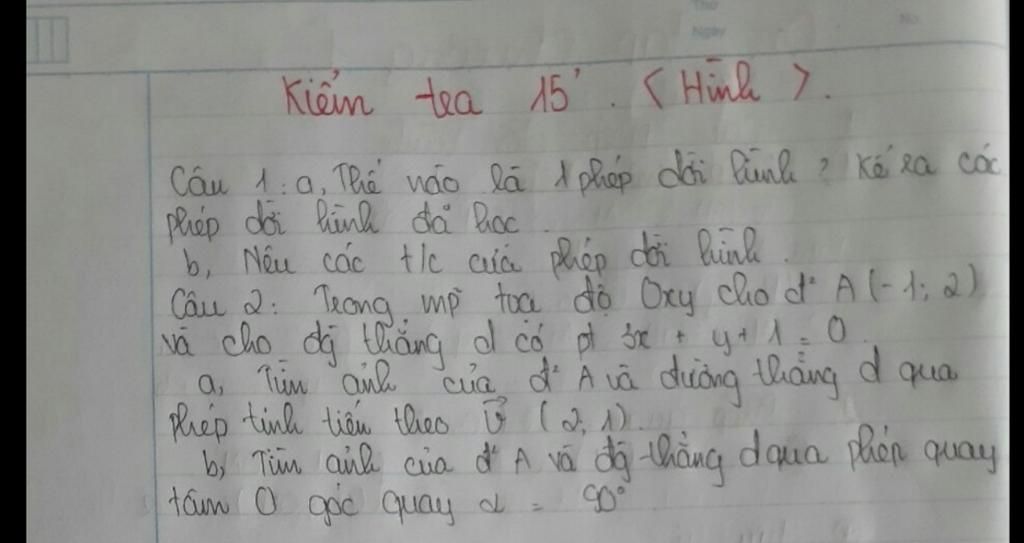 Thứ
Ngày
No.
Kiểm tra 15' . < Hình > .
Câu 1: a, Thế nào là 1 phép dời hình ? Kể ra các
phép dời hình đã học .
b, Nêu các t/c của phép dời hình .
Câu 2: Trong mp toạ độ Oxy cho đ' A (-1; 2)
và cho đg thẳng d có pt 3x + y + 1 = 0
a, Tìm ảnh của đ' A và đường thẳng d qua
phép tịnh tiến theo v⃗ (2; 1).
b, Tìm ảnh của đ' A và đg thẳng d qua phép quay
tâm O góc quay α = 90°